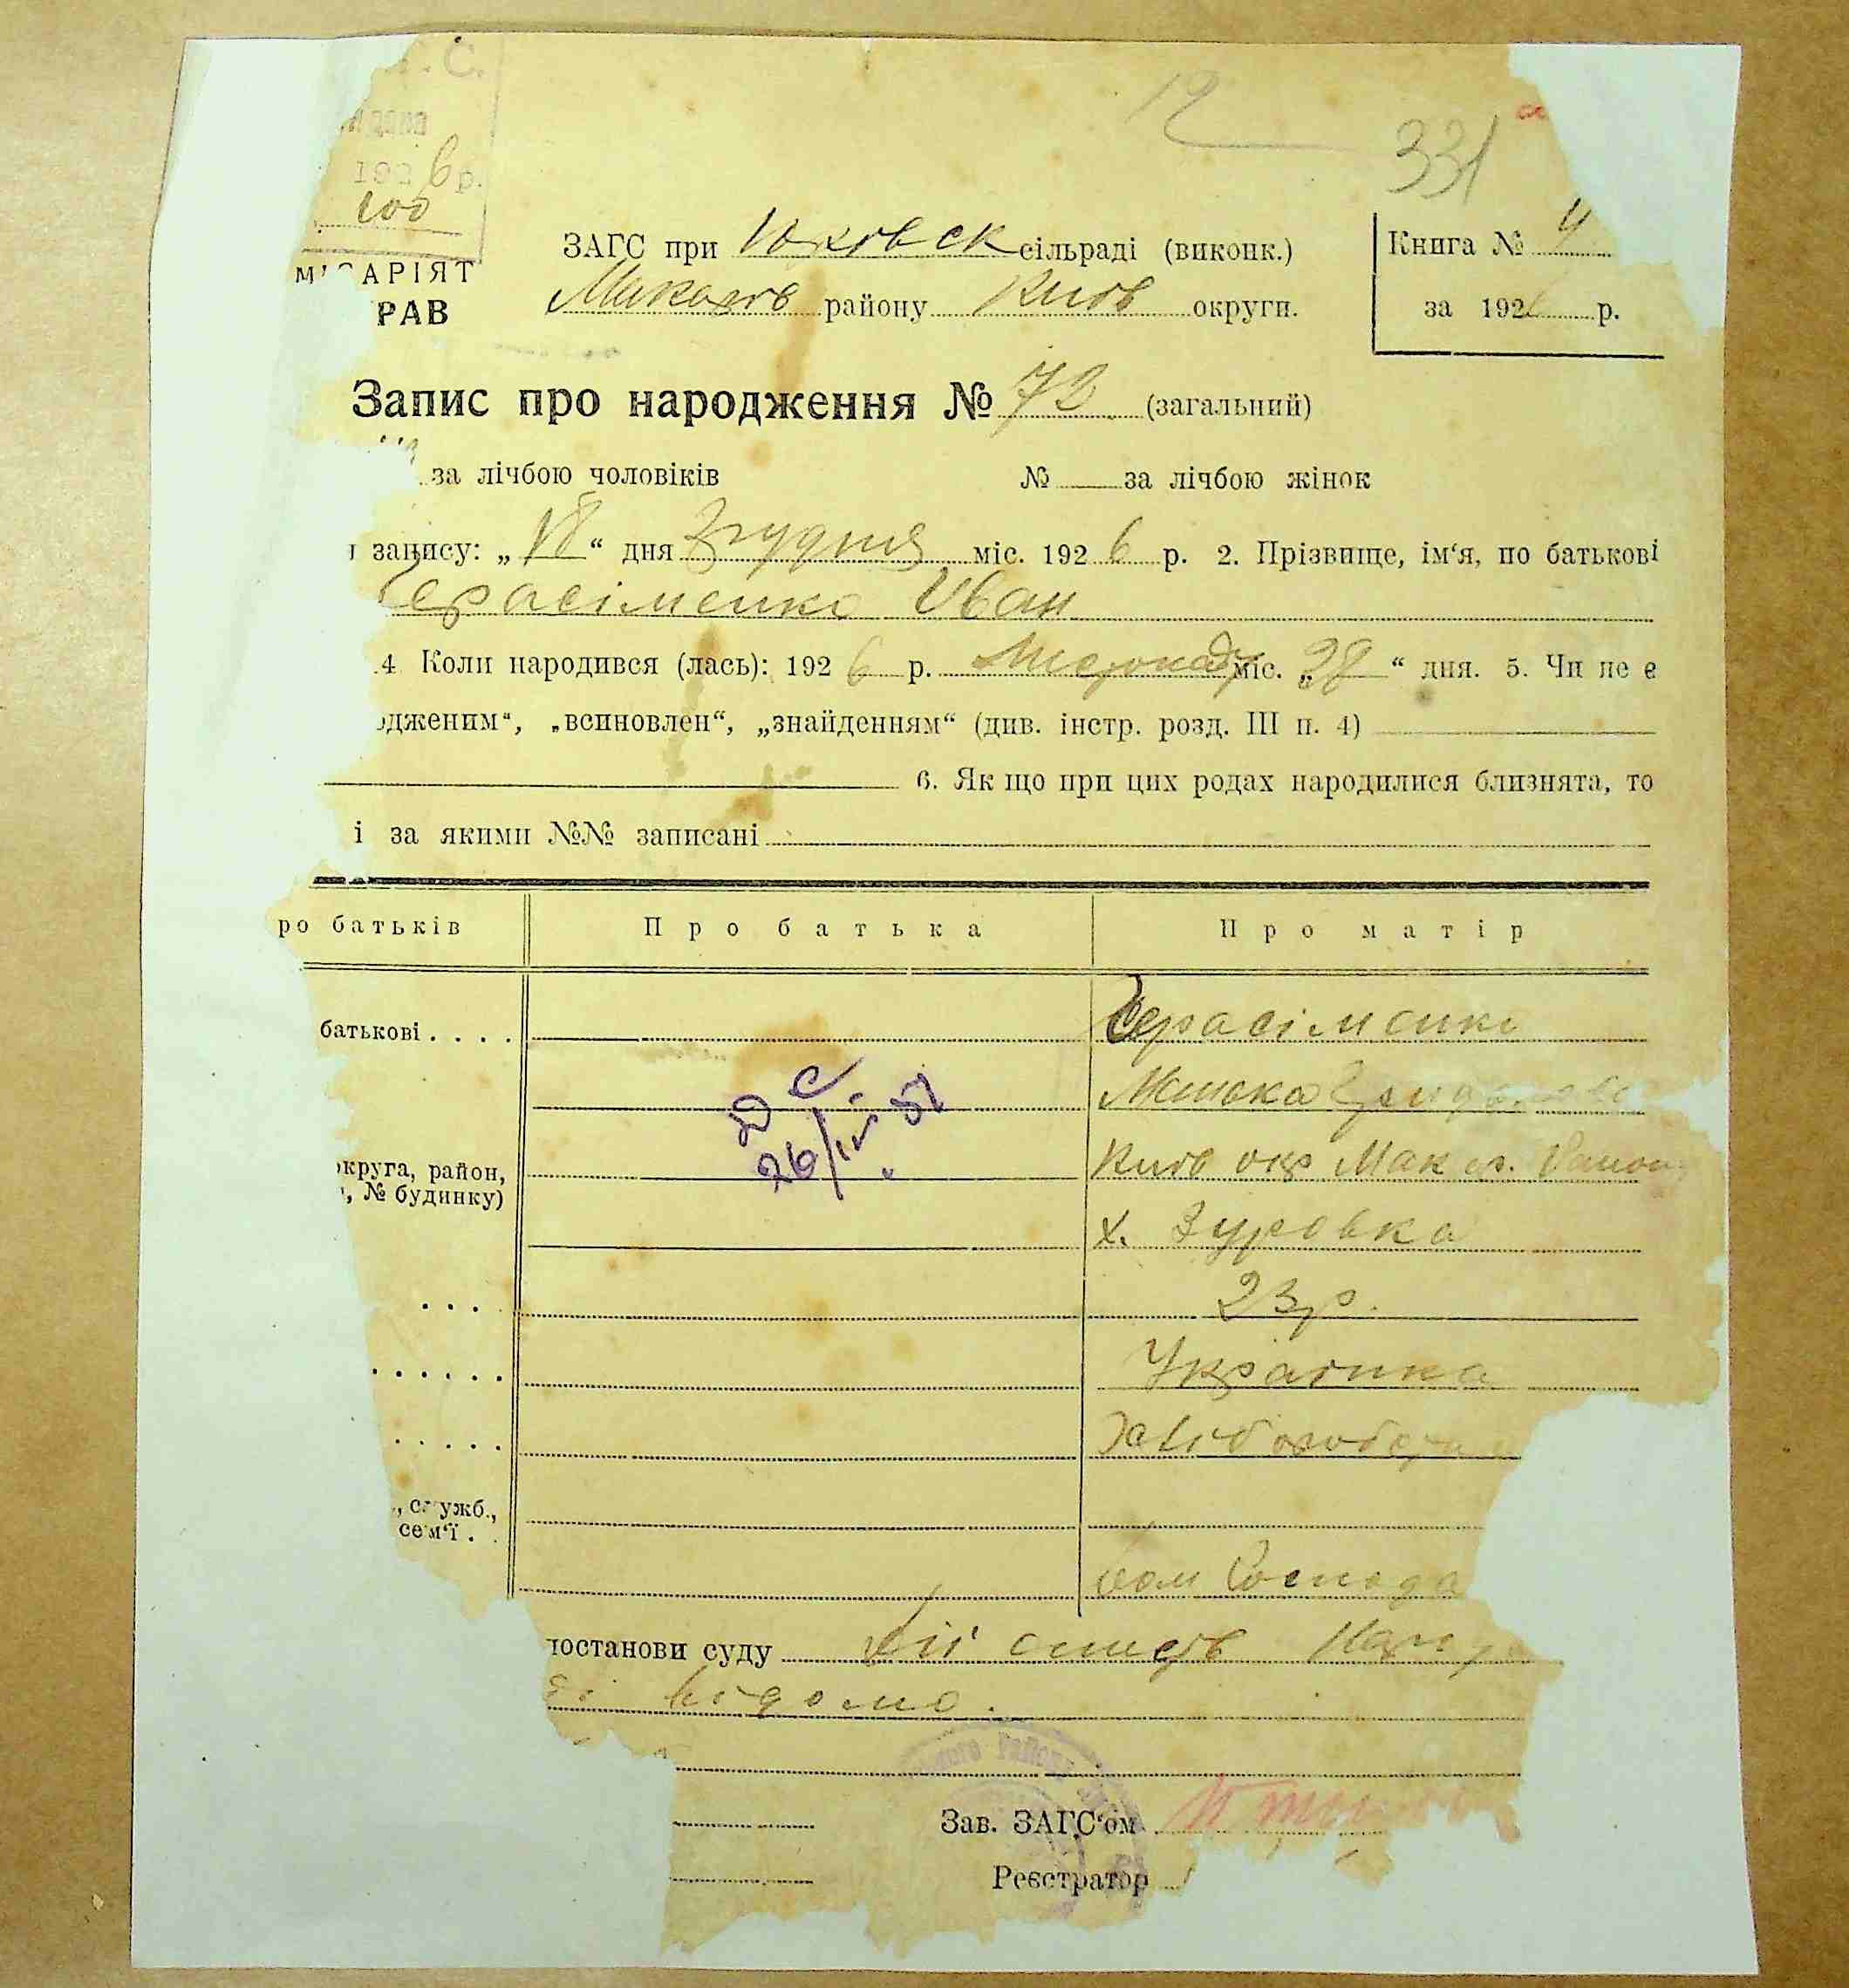 . С.
192 6 р.
12
331
ЗАГС при Юровск сільраді (виконк.)
Книга № 4
АРІЯТ
РАВ
Макарів району Київ округи.
за 1926 р.
Запис про народження № 72 (загальний)
за лічбою чоловіків № за лічбою жінок
запису: „18“ дня Згрудня міс. 1926 р. 2. Прізвище, ім‘я, по батькові
Герасіменко Іван
4 Коли народився (лась): 1926 р. Листопаду міс. „28“ дня. 5. Чи не є
дженим“, „всиновлен“, „знайденням“ (див. інстр. розд. III п. 4)
6. Як що при цих родах народилися близнята, то
і за якими №№ записані
ро батьків Про батька Про матір
батькові . . . . Герасіменко
26/IV 51
округа, район, Київ окр Макар. Район
, № будинку)
х. Зуровка
23 р.
Українка
Хлібороб
, служб.,
сем‘ї .
Господа
постанови суду
відомо.
Зав. ЗАГС‘ом
Реєстратор